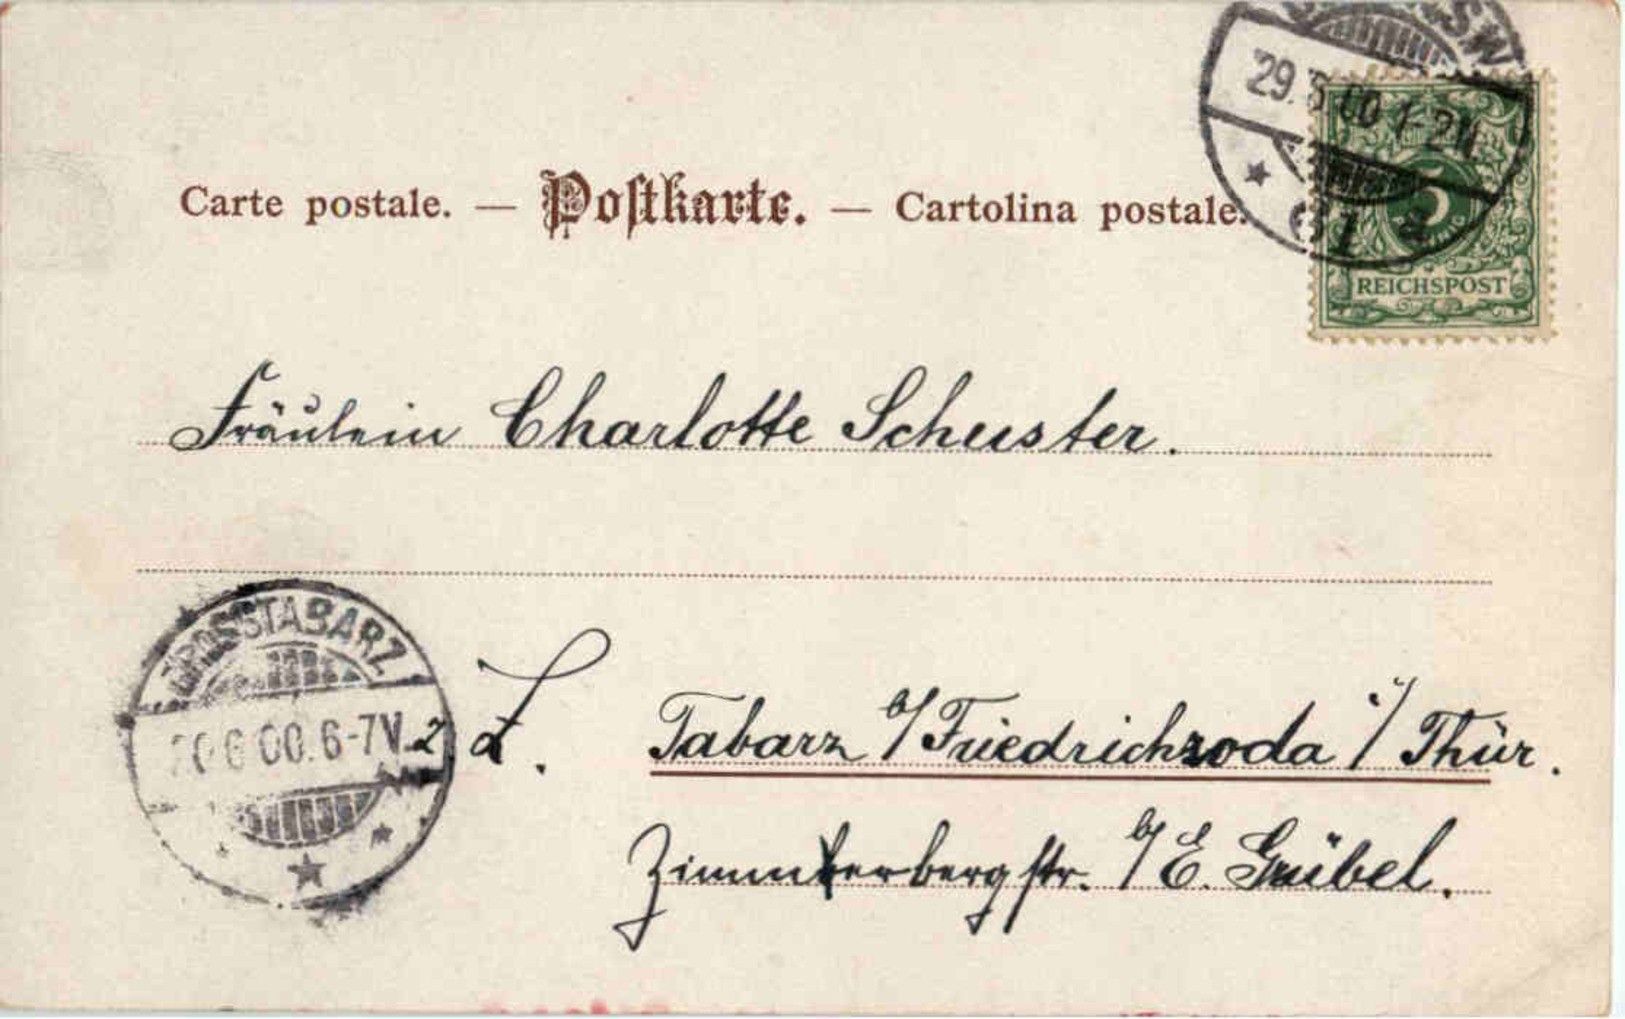 SW
29. 6 00 1-2N
Carte postale. — Postkarte. — Cartolina postale.
5
REICHSPOST
Fräulein Charlotte Schuster.
GROSSTABARZ
6 00. 6-7V.
z. Z. Tabarz b/Friedrichroda i/Thür.
b/E. Grübel.